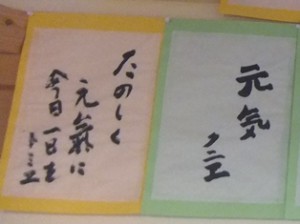 元気
クニエ
たのしく
元氣に
今日一日を
トミエ